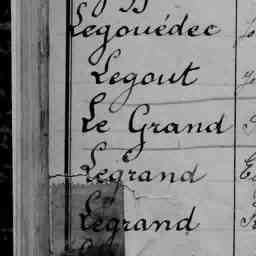 Legouédec
Legout
Le Grand
Legrand
Legrand